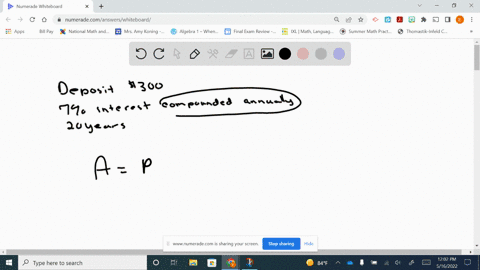 Numerade Whiteboard
numerade.com/answers/whiteboard/
Apps
Bill Pay
National Math and...
Mrs. Amy Koning -...
Algebra 1 – Whever...
Final Exam Review -...
IXL | Math, Languag...
Summer Math Pract...
Deposit $300
7% interest compounded annually
20 years
A = P
www.numerade.com is sharing your screen.
Stop sharing
Hide
Type here to search
84°F
12:02 PM
5/16/2022